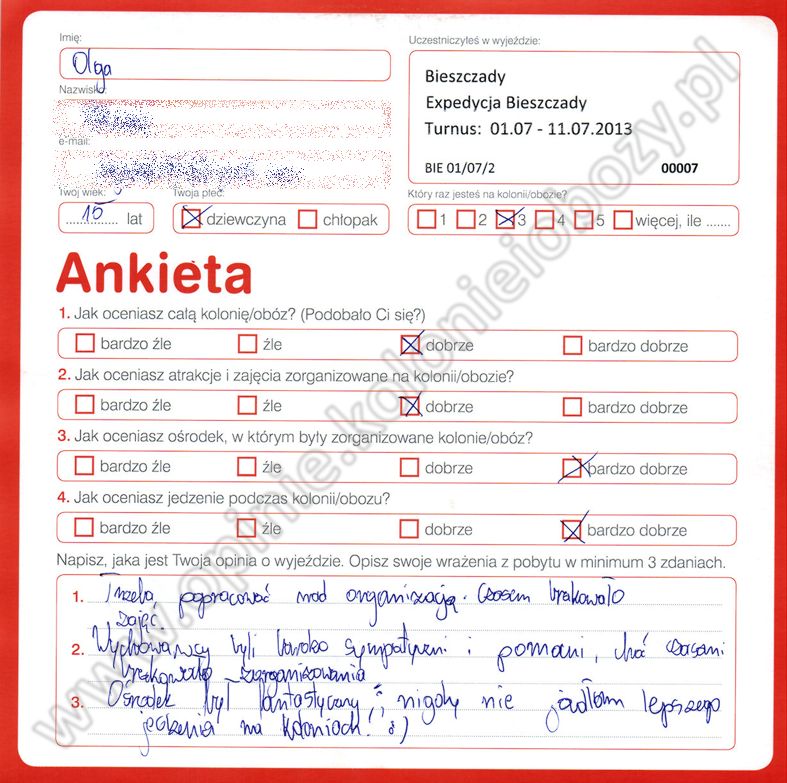 Imię:
Olga
Nazwisko:
e-mail:
Twój wiek:
15 lat
Twoja płeć:
dziewczyna chłopak
Uczestniczyłeś w wyjeździe:
Bieszczady
Expedycja Bieszczady
Turnus: 01.07 - 11.07.2013
BIE 01/07/2 00007
Który raz jesteś na kolonii/obozie?
1 2 3 4 5 więcej, ile .......
Ankieta
1. Jak oceniasz całą kolonię/obóz? (Podobało Ci się?)
bardzo źle źle dobrze bardzo dobrze
2. Jak oceniasz atrakcje i zajęcia zorganizowane na kolonii/obozie?
bardzo źle źle dobrze bardzo dobrze
3. Jak oceniasz ośrodek, w którym były zorganizowane kolonie/obóz?
bardzo źle źle dobrze bardzo dobrze
4. Jak oceniasz jedzenie podczas kolonii/obozu?
bardzo źle źle dobrze bardzo dobrze
Napisz, jaka jest Twoja opinia o wyjeździe. Opisz swoje wrażenia z pobytu w minimum 3 zdaniach.
1. Trzeba popracować nad organizacją. Czasem brakowało
zajęć.
2. Wychowawcy byli bardzo sympatyczni i pomocni, choć czasami
brakowało zorganizowania
3. Ośrodek był fantastyczny, i nigdy nie jadłam lepszego
jedzenia na koloniach! :)
www.opinie.kolonieiobozy.pl